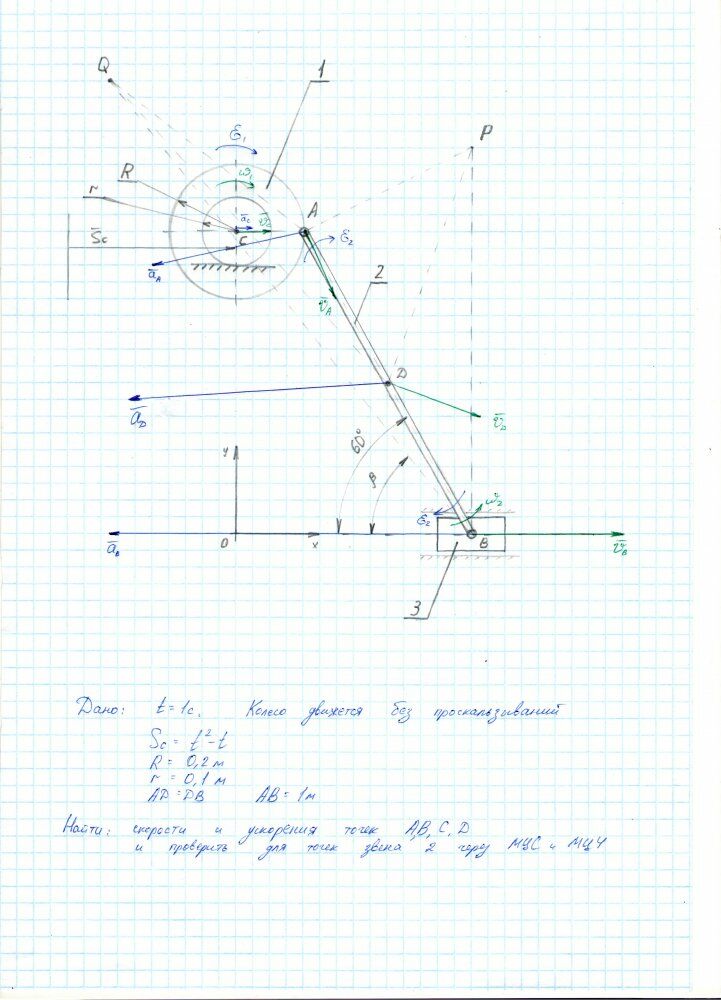 Q
1
P
ε₁
ω₁
R
r
S̄c
āc
v̄c
C
A
ε₂
āA
v̄A
2
D
āD
v̄D
60°
β
y
ε₂
ω₂
āB
O
x
B
v̄B
3
Дано: t=1c. Колесо движется без проскальзываний
Sc = t²-t
R = 0,2 м
r = 0,1 м
AD = DB AB = 1м
Найти: скорости и ускорения точек A,B,C,D
и проверить для точек звена 2 через МЦС и МЦУ